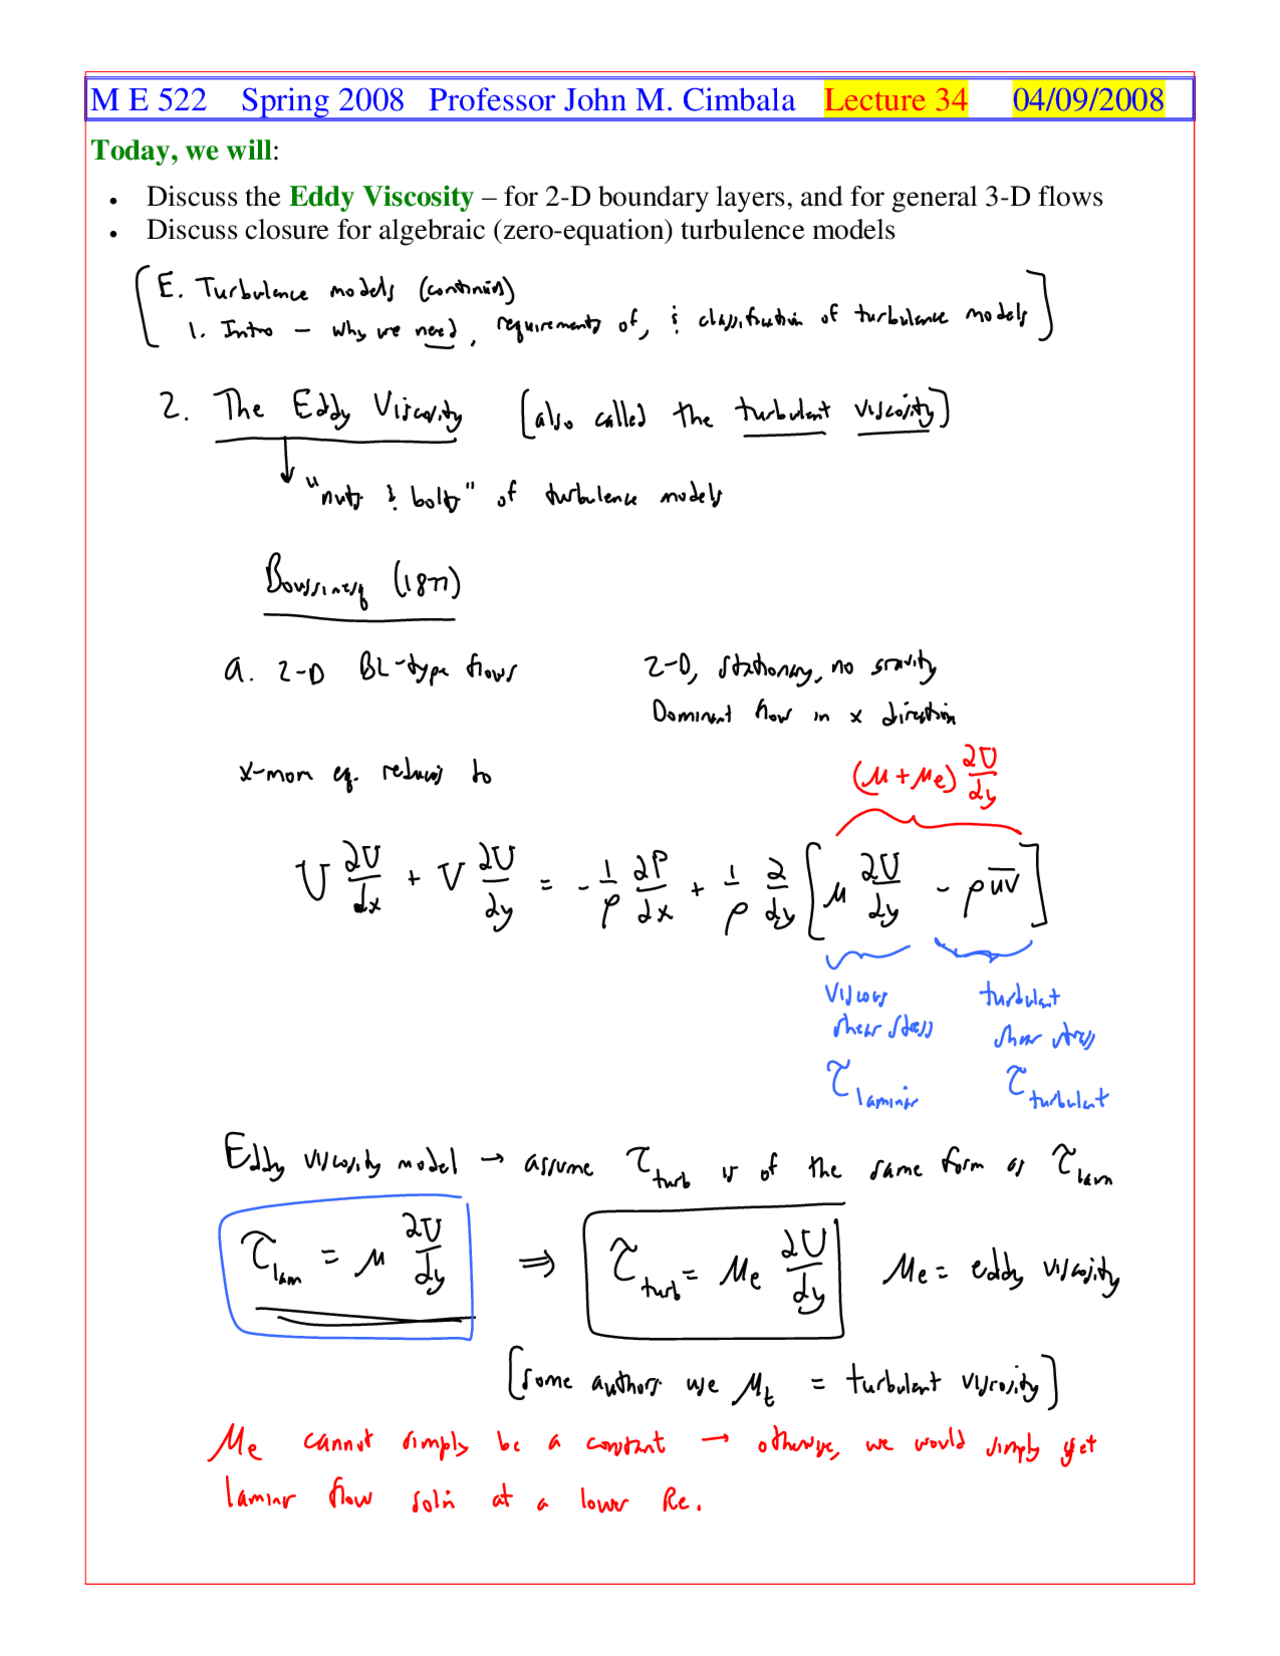 M E 522 Spring 2008 Professor John M. Cimbala Lecture 34 04/09/2008
Today, we will:
• Discuss the Eddy Viscosity – for 2-D boundary layers, and for general 3-D flows
• Discuss closure for algebraic (zero-equation) turbulence models
[E. Turbulence models (continued)
1. Intro – why we need, requirements of, & classification of turbulence models]
2. The Eddy Viscosity [also called the turbulent viscosity]
↓ "nuts & bolts" of turbulence models
Boussinesq (1877)
a. 2-D BL-type flows 2-D, stationary, no gravity
Dominant flow in x direction
x-mom eq. reduces to
(μ + μe) ∂U/∂y
U ∂U/∂x + V ∂U/∂y = - 1/ρ ∂P/∂x + 1/ρ ∂/∂y [μ ∂U/∂y - ρ u̅v̅]
viscous turbulent
shear stress shear stress
τ laminar τ turbulent
Eddy viscosity model → assume τ turb is of the same form as τ lam
τ lam = μ ∂U/∂y ⇒ τ turb = μe ∂U/∂y μe = eddy viscosity
[some authors use μt = turbulent viscosity]
μe cannot simply be a constant → otherwise, we would simply get
laminar flow sol'n at a lower Re.